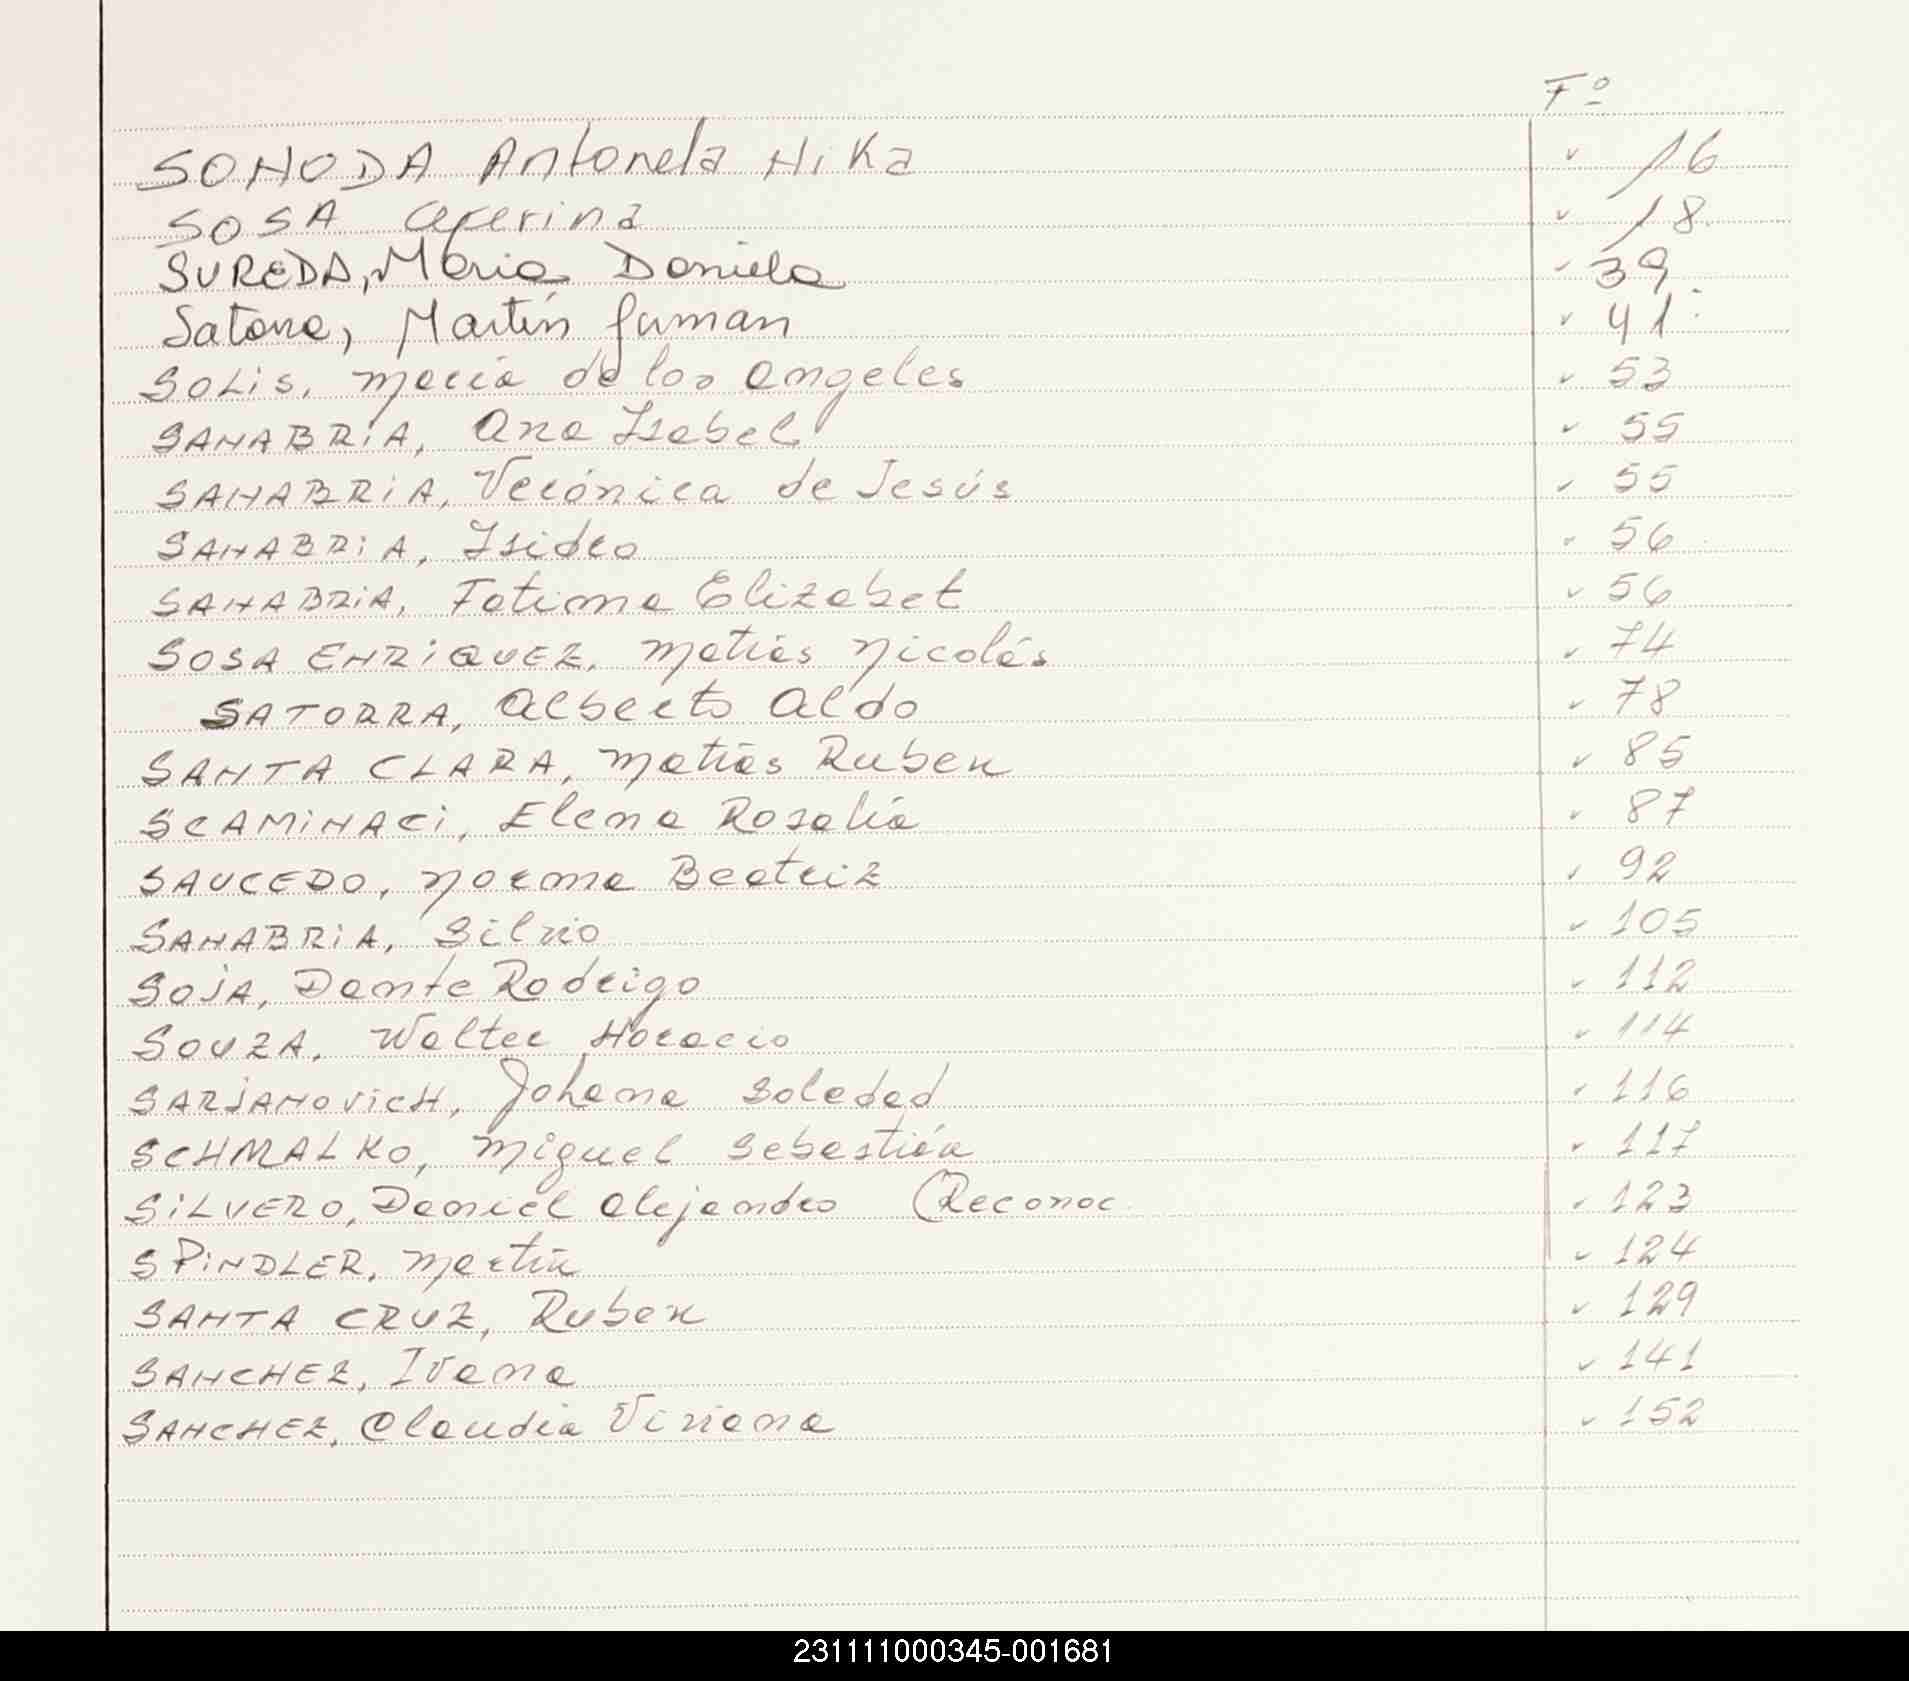 Fº
SONODA Antonela Hika 16
SOSA Ceferina 18
SUREDA, Maria Daniela 39
Satorre, Martín German 41
SOLIS, maria de los angeles 53
SANABRIA, Ana Isabel 55
SANABRIA, Verónica de Jesús 55
SANABRIA, Isidro 56
SANABRIA, Fatima Elizabet 56
SOSA ENRIQUEZ, matías nicolás 74
SATORRA, Alberto Aldo 78
SANTA CLARA, matías Ruben 85
SCAMINACI, Elena Rosalía 87
SAUCEDO, norma Beatriz 92
SANABRIA, Silvio 105
SOJA, Dante Rodrigo 112
SOUZA, Walter Horacio 114
SARJANOVICH, Johana Soledad 116
SCHMALKO, miguel Sebastián 117
SILVERO, Daniel Alejandro (Reconoc. 123
SPINDLER, martín 124
SANTA CRUZ, Ruben 129
SANCHEZ, Ivana 141
SANCHEZ, Claudia Viviana 152
231111000345-001681